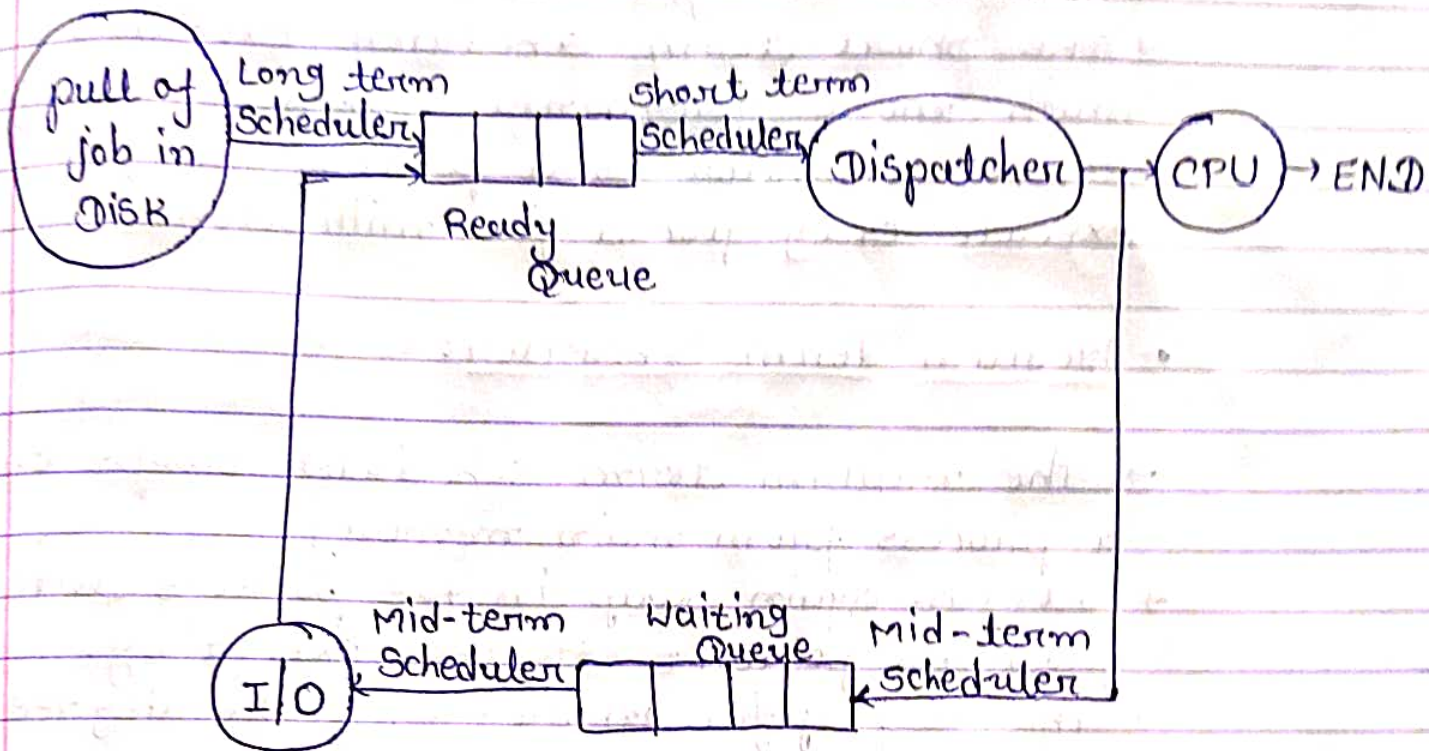 pull of
job in
Disk
Long term
Scheduler
Ready
Queue
short term
scheduler
Dispatcher
CPU
END
Mid-term
Scheduler
Waiting
Queue
Mid-term
scheduler
I/O